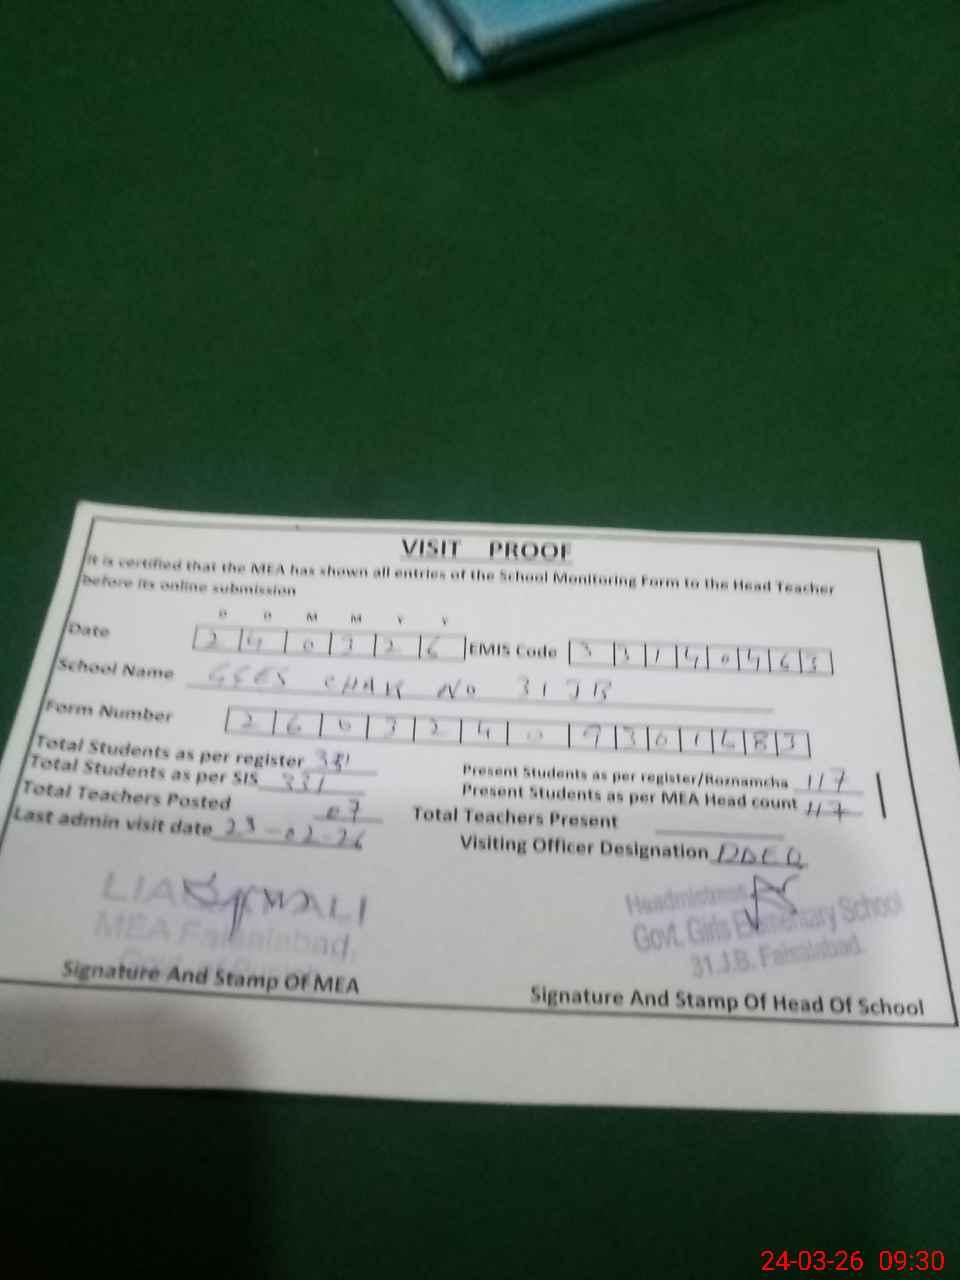 VISIT PROOF
It is certified that the MEA has shown all entries of the School Monitoring Form to the Head Teacher
before its online submission
D D M M Y Y
Date 2 4 0 3 2 6 EMIS Code 3 3 1 4 0 4 6 3
School Name GGES CHAK NO 31 JB
Form Number 2 6 0 3 2 4 0 9 3 0 1 6 8 3
Total Students as per register 331
Total Students as per SIS 331
Total Teachers Posted 07
Last admin visit date 23-02-26
Present Students as per register/Roznamcha 117
Present Students as per MEA Head count 117
Total Teachers Present
Visiting Officer Designation DDEO
ALI
MEA Faisalabad,
Signature And Stamp Of MEA
Headmistress
Govt. Girls Elementary School
31.J.B. Faisalabad.
Signature And Stamp Of Head Of School
24-03-26 09:30